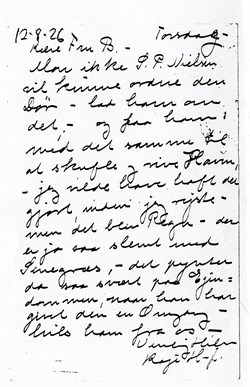 12-8-26 Torsdag
Kære Fru B. -
Mon ikke S. P. Nielsen
vil kunne ordne den
Dør - lad ham om
det, - og faa ham
med det samme til
at skuffe og rive Haven,
- jeg vilde have haft det
gjort inden jeg rejste -
men det blev Regn - der
er jo saa slemt med
Senegræs, - det pynter
da saa svært paa Ejen-
dommen, naar han har
givet den en Omgang -
hils ham fra os -
Venlig Hilsen